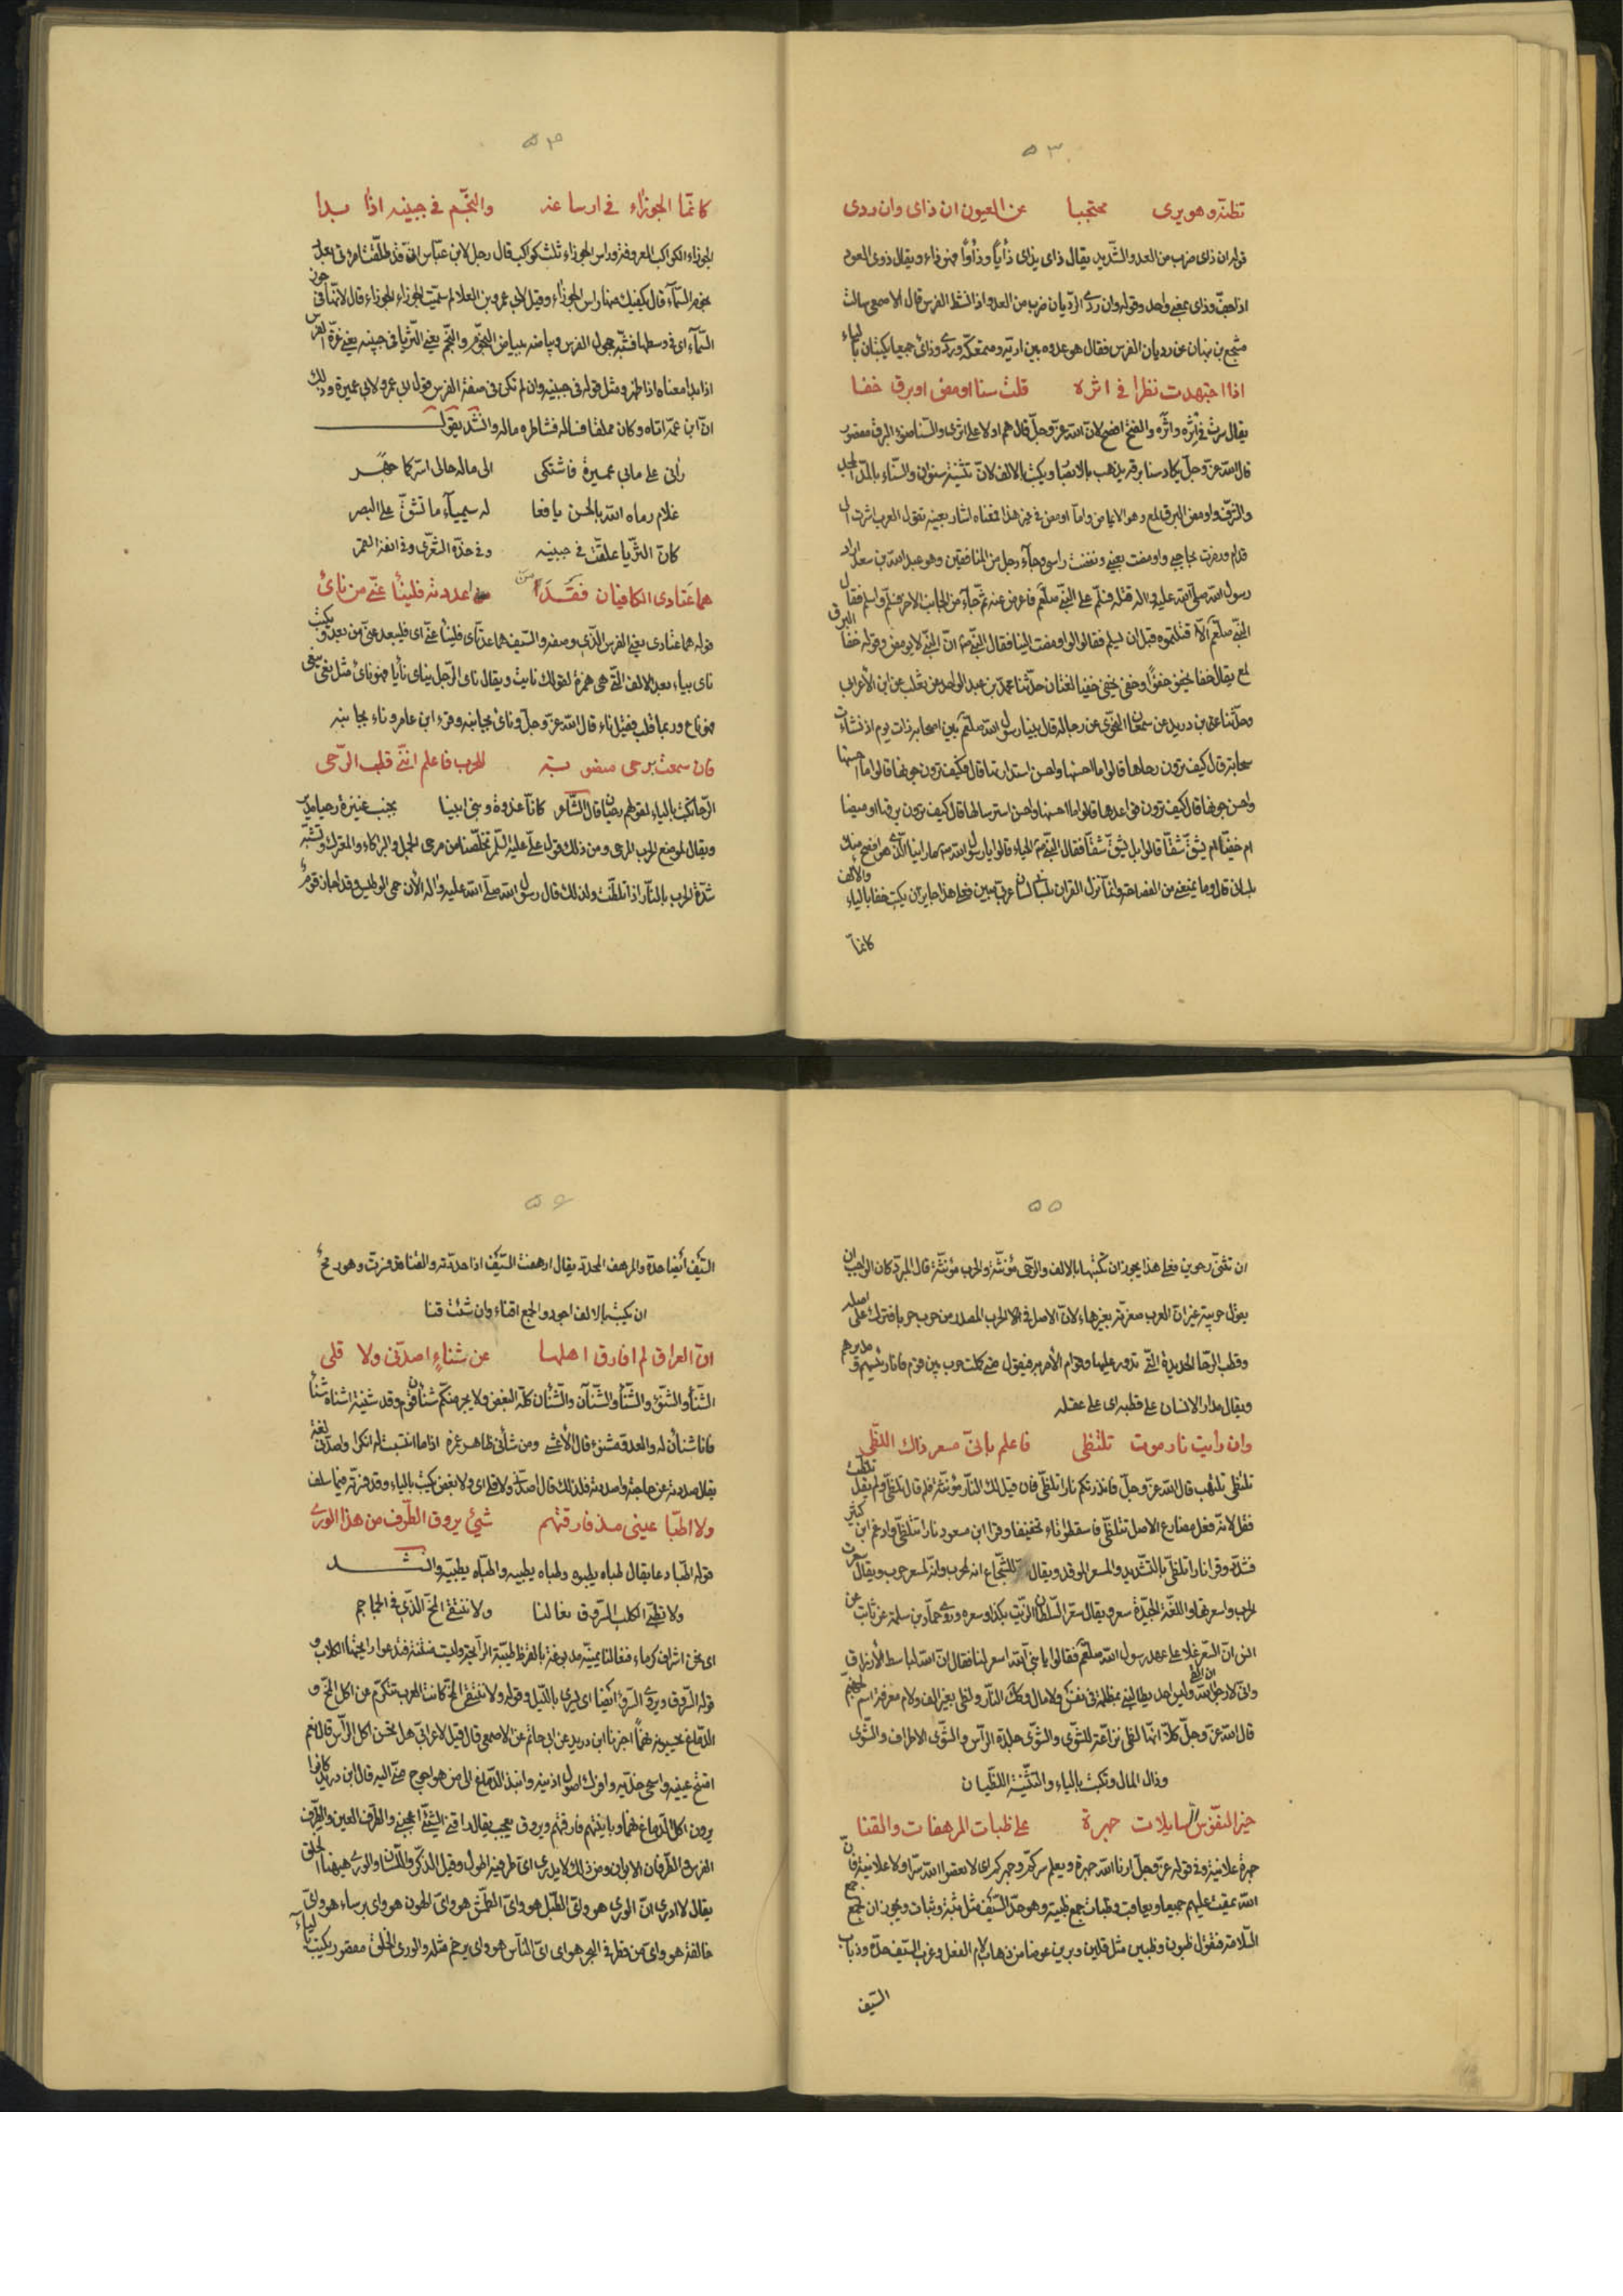 ٥٣
تظنه وهو يرى محتجبا عن العيون ان ذاى وان ردى
قوله ان ذاى ضرب من العدو الشديد يقال ذاى يذاى ذأيا وذأوا فهو ذاء ويقال ذوى العود
اذا جف وذاى بمعنى واحد وقوله وان ردى الرديان ضرب من العدو اذا نشط الفرس قال الاصمعى سالت
منتجع بن نبهان عن رديان الفرس فقال هو عدوه بين اريه ومتمعكه وردى وذاى جميعا يكتبان بالياء
اذا اجتهدت نظرا فى اثره قلت سنا اومض او برق خفا
يقال سرت فى اثره واثره والفتح افصح لان الله عز وجل قال هم اولاء على اثرى والسنا ضوء البرق مقصور
قال الله عز وجل يكاد سنا برقه يذهب بالابصار ويكتب بالالف لان تثنيته سنوان والسناء بالمد المجد
والشرف واومض البرق لمع وهو الايماض واما اومض فى غير هذا فمعناه اشار بعينه تقول العرب اشرت الى
فلان ورمزت بحاجبى واومضت بعينى ونغضت راسى وجاء رجل من المنافقين وهو عبد الله بن سعد اراد
رسول الله صلى الله عليه واله قتله فسلم على النبى صلعم فاعرض عنه ثم جاء من الجانب الاخر فسلم واسلم فقال
النبى صلعم الا قتلتموه قبل ان يسلم فقالوا لو اومضت الينا فقال النبى ان النبى لا يومض وقوله خفا البرق
لمع يقال خفا يخفو خفوا وخفى يخفى خفيا لغتان حدثنا محمد بن عبد الواحد عن ثعلب عن ابن الأعرابى
رسول الله صلعم بين اصحابه ذات يوم اذ نشأت
سحابة قال كيف ترون رحاها قالوا ما احسنها واحسن استدارتها قال فكيف ترون جونها قالوا ما احسنها
واحسن جونها قال كيف ترون قواعدها قالوا ما احسنها واحسن استرسالها قال كيف ترون برقها اوميضا
ام خفيا ام يشق شقا قالوا بل يشق شقا فقال النبى الحياء قالوا يا رسول الله ما راينا الذى هو افصح منك
بلسانى عربى مبين فعلى هذا جايز ان يكتب خفا بالياء والألف
كانما
٥٤
كانما الجوزاء فى ارساغه والنجم فى جبينه اذا بدا
الجوزاء الكواكب المعروفة وراس الجوزاء ثلث كواكب قال رجل لابن عباس انى قد طلقت امراتى بعدد
نجوم السماء قال يكفيك منها راس الجوزاء وقيل لابى عمرو بن العلا لم سميت الجوزاء الجوزاء قال لانها فى جوز
السماء اى فى وسطها فشبه حجول الفرس وبياضه ببياض النجوم والنجم يعنى الثريا فى جبينه يعنى غرة الفرس
اذا بدا معناه اذا ظهر ومثل قوله فى جبينه وان لم تكن فى صفة الفرس قول ابى عمرو لابى عميرة وذلك
ان ابن عمه اتاه وكان مملقا فساله فشاطره ماله وانشد يقول
رانى على مابى عميرة فاشتكى الى ماله حالى اسر كما جهر
غلام رماه الله بالحسن يافعا له سيمياء ما تشق على البصر
كان الثريا علقت فى جبينه وفى خده الشعرى وفى انفه القمر
هما عتادى الكافيان فقد من اعددته فلينأ عنى من نائ
قوله هما عتادى يعنى الفرس الذى وصفه والسيف هما عدتاى فلينأ عنى اى فليبعد عنى من بعد ويكتب
ناى بياء بعد الالف التى هى همزة لقولك نايت ويقال ناى الرجل ينأى نأيا فهو نائ مثل نعى ينعى
فهو ناع وربما قلب فقيل ناء قال الله عز وجل ونائ بجانبه وقرء ابن عامر وناء بجانبه
فان سمعت برحى منصوبة للحرب فاعلم اننى قطب الرحى
الرحا تكتب بالياء لقولهم رحيان قال الشاعر كانا غدوة وبنى ابينا بجنب عنيزة رحيا مدير
ويقال لموضع الحرب المرحى ومن ذلك قول على عليه السلم تخلصنا من مرحى الجمل والبراكاء والمعترك وتشبه
شدة الحرب بالنار اذا تلظت ولذلك قال رسول الله صلى الله عليه واله الأن حمى الوطيس وقد اجاز قوم
٥٥
ان تثنى رحوين فعلى هذا يجوز ان تكتبها بالالف والرحى مؤنثة والحرب مؤنثة قال المبرد كان الواجب ان
يقول حريبة غير ان العرب صغرته بغير هاء لان الاصل فى الحرب المصدر من حرب حربا فترك على اصله
وقطب الرحا الحديدة التى تدور عليها وقوام الأمر به فيقول متى كانت حرب بين قوم فانا رئيسهم ومدبرهم
ويقال مدار الانسان على قطبه اى على عقله
وان رايت نار موت تلتظى فاعلم بانى مسعر ذاك اللظى
تلتظى تلتهب قال الله عز وجل فانذرتكم نارا تلظى فان قيل لك النار مؤنثة فلم قال تلظى ولم يقل تلظت
فقل لانه فعل مضارع الاصل تتلظى فاسقطوا تاء تخفيفا وقرا ابن مسعود نارا تتلظى وادغم ابن كثير
فشدد وقرا نارا تلظى بالتشديد والمسعر الموقد ويقال للشجاع انه لمحرب وانه لمسعر حرب ويقال سعرت
الحرب واسعرتها واللغة الجيدة سعر ويقال سعر السلطان الزيت بكذا وسعره وروى حماد بن سلمة عن ثابت عن
انس ان السعر غلا على عهد رسول الله صلعم فقالوا يا نبى الله اسعر لنا فقال ان الله الباسط الأرزاق
وانى لارجوا ان القى الله وليس احد يطالبنى بمظلمة فى نفس ولا مال ولظى بغير الف ولام معرفة اسم لجهنم
قال الله عز وجل كلا انها لظى نزاعة للشوى والشوى جلدة الرأس والشوى الاطراف والشوى
رذال المال وتكتب بالياء والتثنية اللظيان
خير النفوس السايلات جهرة على ظبات المرهفات والقنا
جهرة علانية وفى قوله عز وجل ارنا الله جهرة ويعلم سركم وجهركم
الله وظبات جمع ظبة وهو حد السيف مثل ثبة وثبات ويجوز ان تجمع جمع
السلامة فتقول ظبون وظبين مثل قلين وبرين عوضا من ذهاب لام الفعل وغرب السيف حده وذباب
السيف
٥٦
السيف ايضا حده والمرهف المحدد يقال ارهفت السيف اذا حددته والقنا قد فسرت وهو رمح
ان يكتب بالالف اجود والجمع اقناء وان شئت قنا
ان العراق لم افارق اهلها عن شناءٍ اصدنى ولا قلى
الشنأ والشنوء والشنأ والشنآن والشنأن كله البغض ولا يجرمنكم شنآن قوم وقد شنيته اشناه شنأ
فانا شنأن له والعدو مشنوء قال الأعشى ومن شأنى ظاهر غمره اذا ما انتسبت له انكرا واصدنى لغة
يقال صددته عن حاجته واصددته فلذلك قال اصدنى ولا قلى اى ولا بغض يكتب بالياء وقد فسرته فيما سلف
ولا اطبا عينى مذ فارقتهم شيئ يروق الطرف من هذا الورى
قوله اطبا دعا يقال طباه يطبوه وطباه يطبيه واطباه يطبيه وانشد
ولا تطبى الكلب السروق نعالنا ولا ننتقى المخ الذى فى الجماجم
اى نحن اشراف كرماء فنعالنا يمنية مدبوغة بالقرظ طيبة الرايحة وليست منتنة فتدعوا رايحتها الكلاب و
قوله السروق ويروى السرو ايضا اى يسرى بالليل وقوله ولا ننتقى المخ كانت العرب تتكرم من اكل المخ و
الدماغ اخبرنا ابن دريد عن ابى حاتم عن الاصمعى قال قيل لاعرابى هل تحسن اكل الرأس قال نعم
افتح عينيه واسحى خديه وافك اصول اذنيه وانبذ الدماغ الى من هو احوج منى اليه قال ابن دريد كانوا
يرون اكل الدماغ نهما وباينتهم فارقتهم ويروق يعجب يقال راقنى الشئ اعجبنى والطرف العين والطرف
الفرس والطرفان الابوان ومن ذلك لا يدرى اى طرفيه اطول وقيل الذكر واللسان والورى ههنا الخلق
يقال لا ادرى اى الورى هو واى الطبل هو واى الطمش هو واى الهون هو واى برساء هو واى
خالفة هو واى من فطر فى البحر هو اى اى الناس هو واى يرخم مثله والورى الخلق مقصور يكتب بالياء